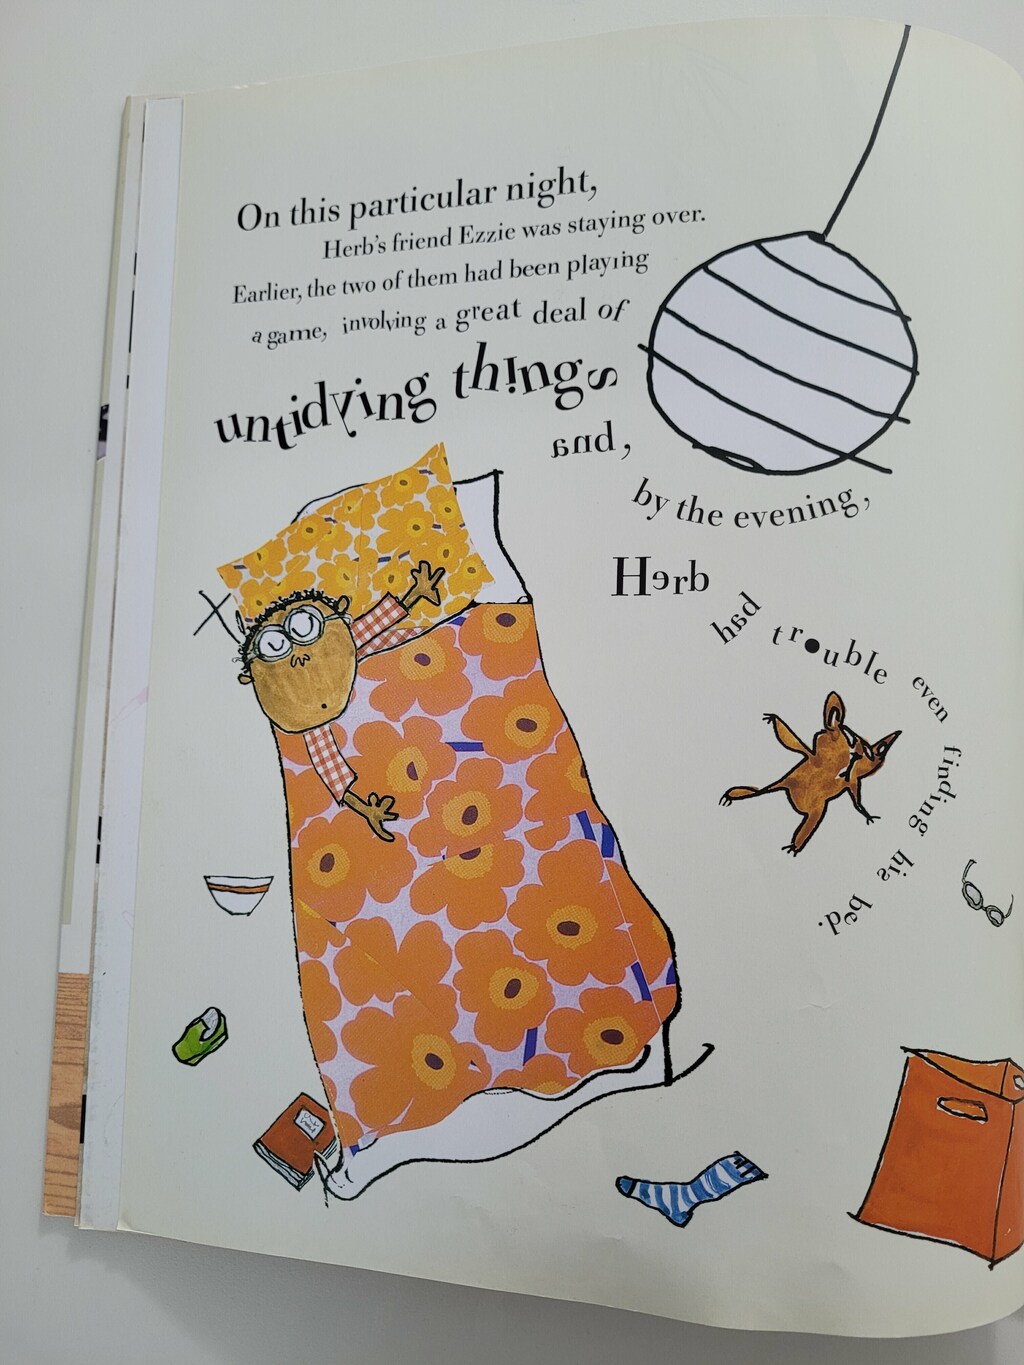 On this particular night,
Herb's friend Ezzie was staying over.
Earlier, the two of them had been playing
a game, involving a great deal of
untidying things
and,
by the evening,
Herb
had trouble even finding his bed.